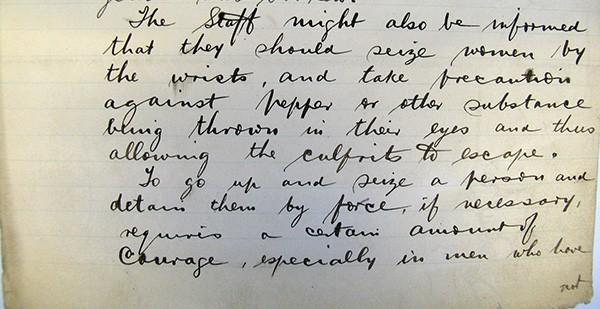 The Staff might also be informed
that they should seize women by
the wrists, and take precaution
against pepper or other substance
being thrown in their eyes and thus
allowing the culprits to escape.
To go up and seize a person and
detain them by force, if necessary,
requires a certain amount of
Courage, especially in men who have
not